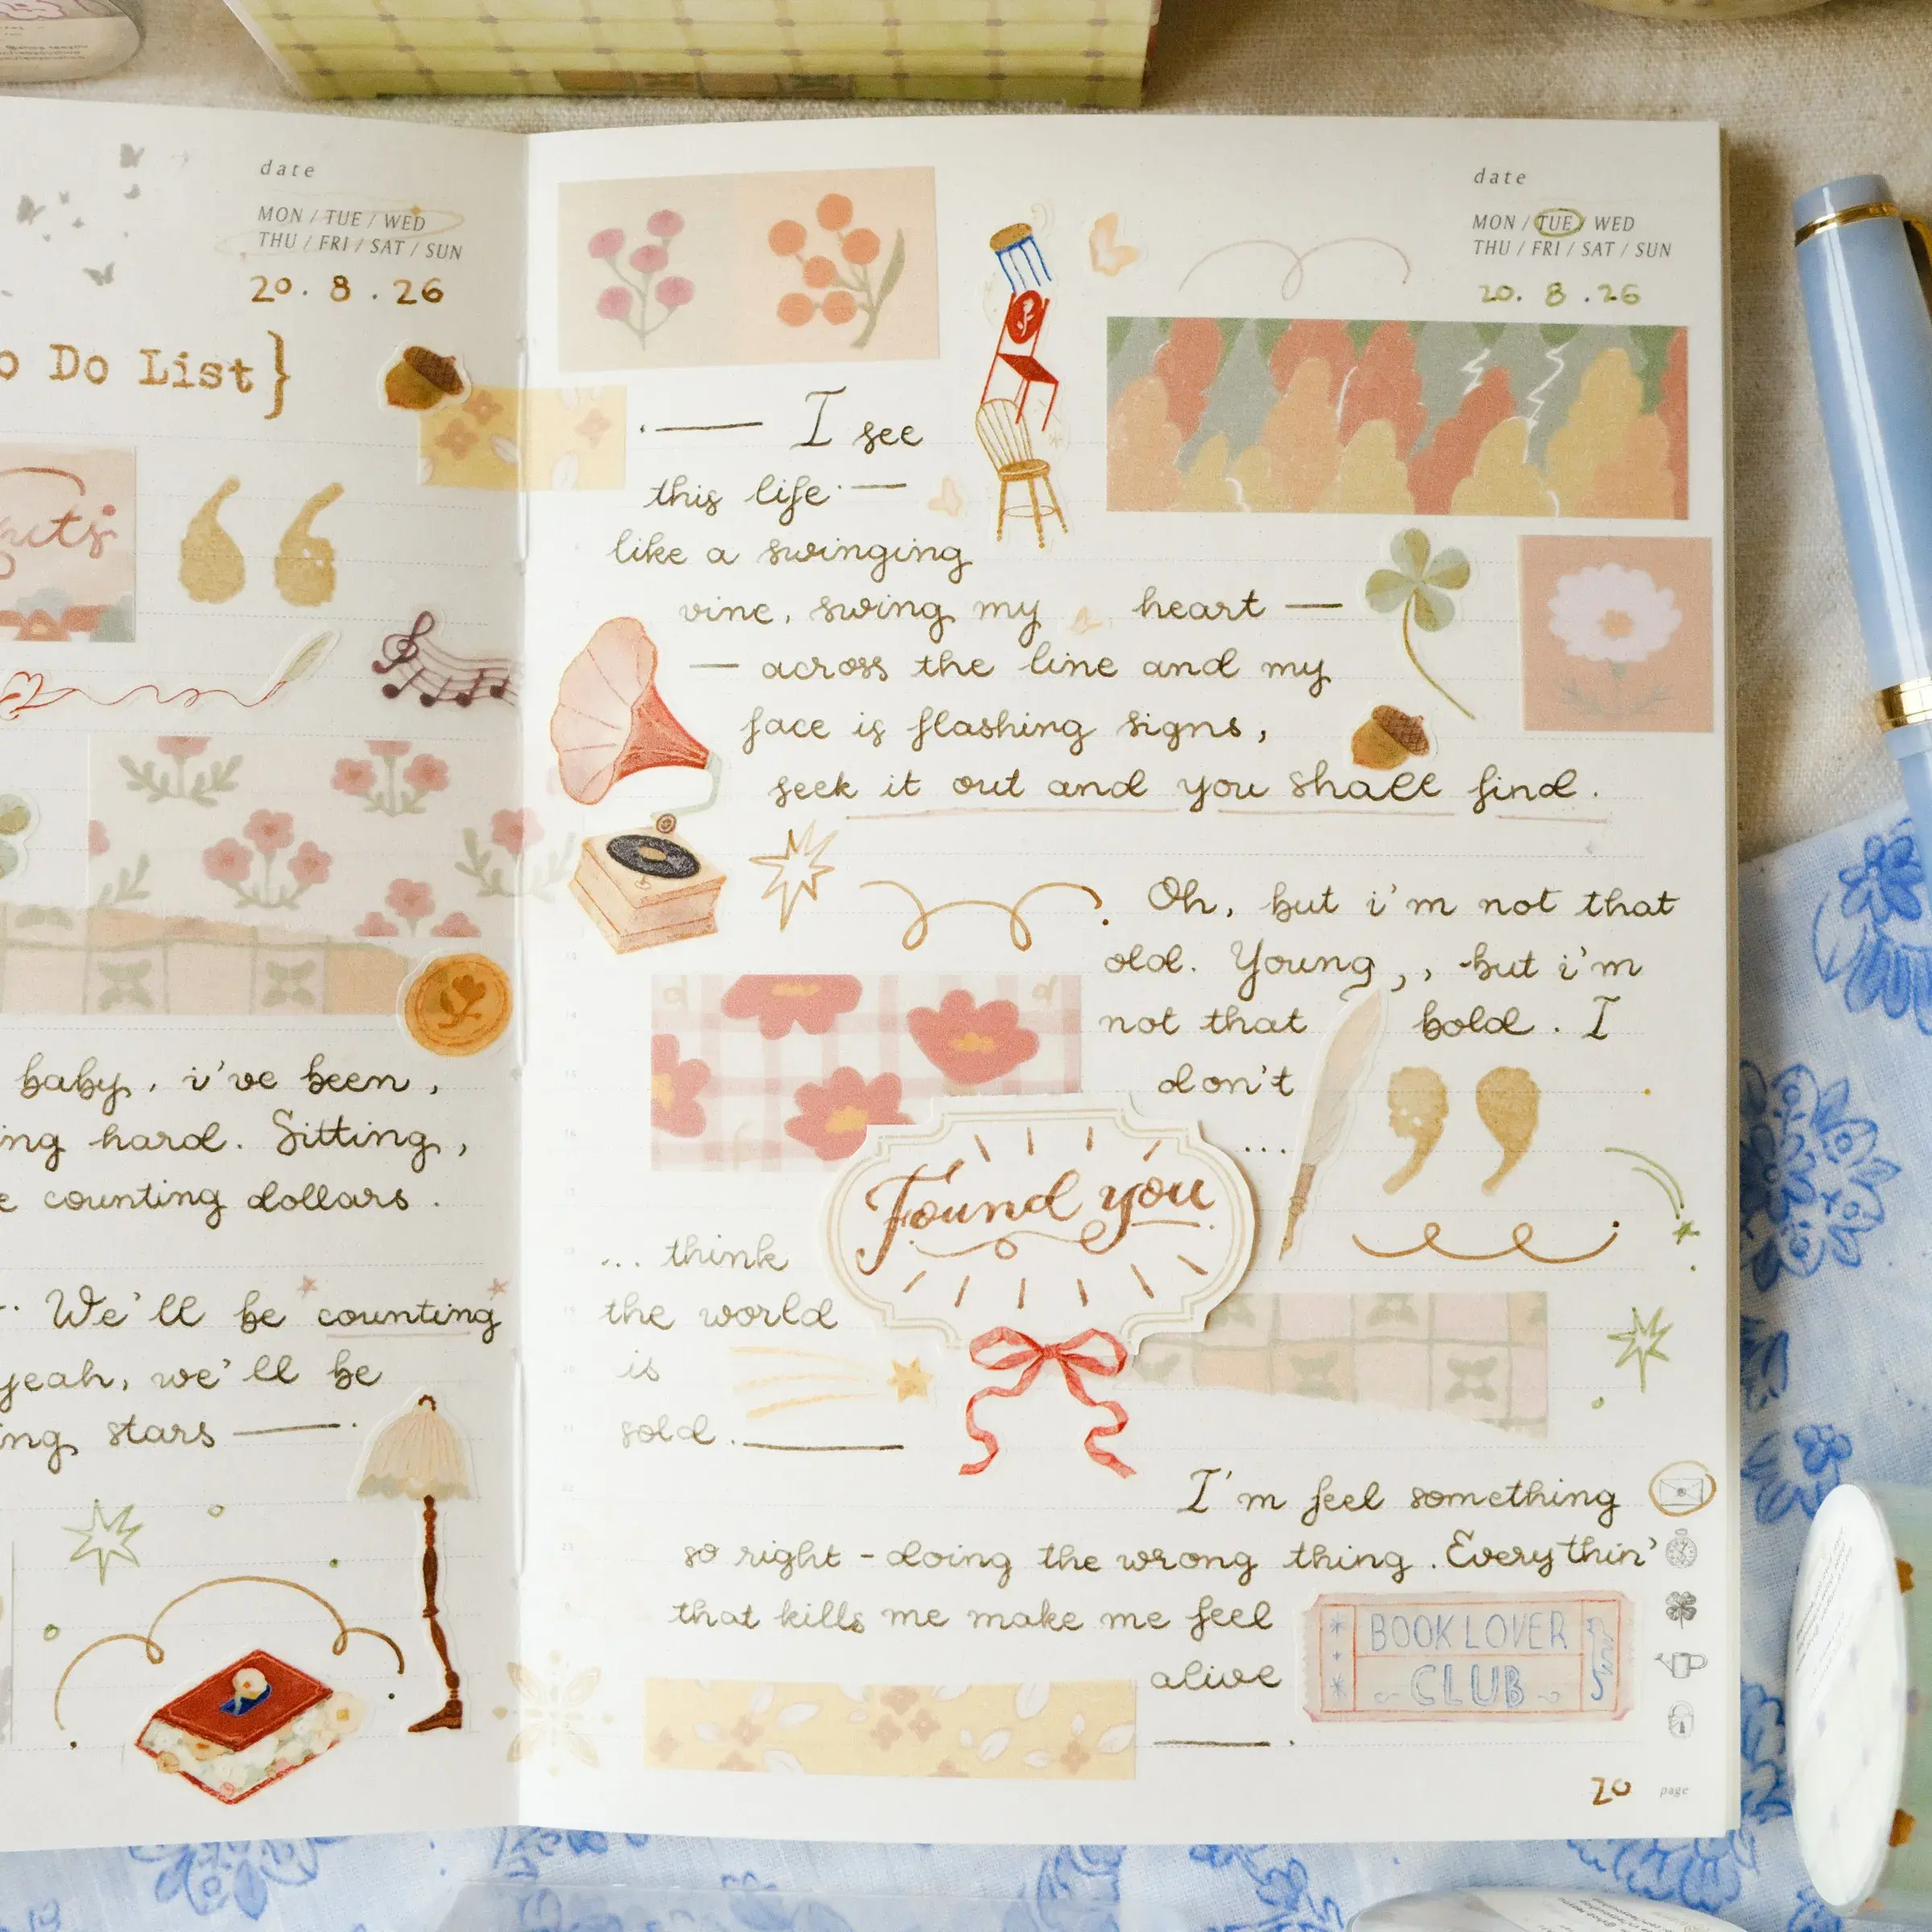 date
MON / TUE / WED
THU / FRI / SAT / SUN
20. 8 . 26
Do List}
baby, i've been,
hard. Sitting,
counting dollars.
We'll be counting
yeah, we'll be
stars
date
MON / TUE / WED
THU / FRI / SAT / SUN
20. 8 .26
I see
this life
like a swinging
vine, swing my heart —
— across the line and my
face is flashing signs,
seek it out and you shall find.
Oh, but i'm not that
old. Young,, but i'm
not that bold. I
don't
...
Found you
... think
the world
is
sold.
I'm feel something
so right - doing the wrong thing. Everythin'
that kills me make me feel
alive
BOOK LOVER
CLUB
20 page